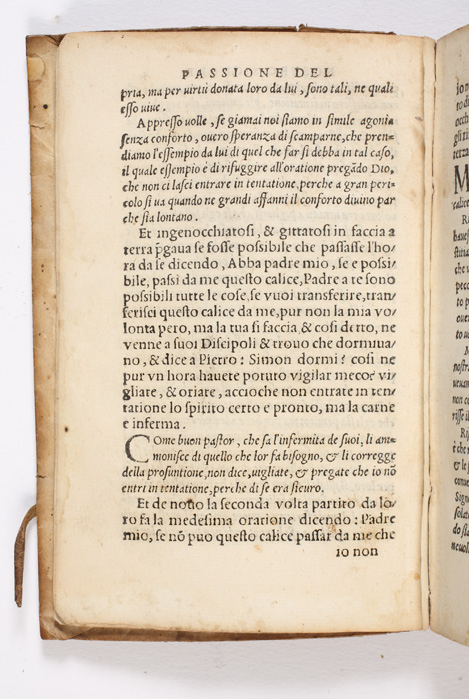 PASSIONE DEL
pria, ma per virtù donata loro da lui, sono tali, ne quali
esso viue.
Appresso volle, se giamai noi siamo in simile agonia
senza conforto, ouero speranza di scamparne, che pren-
diamo l'essempio da lui di quel che far si debba in tal caso,
il quale essempio è di rifuggire all'oratione pregãdo Dio,
che non ci lasci entrare in tentatione, perche a gran peri-
colo si va quando ne grandi affanni il conforto diuino par
che stia lontano.
Et ingenocchiatosi, & gittatosi in faccia a
terra p̃gaua se fosse possibile che passasse l'ho/
ra da se dicendo, Abba padre mio, se e possi/
bile, passi da me questo calice, Padre a te sono
possibili tutte le cose, se vuoi transferire, tran/
ferisci questo calice da me, pur non la mia vo/
lonta pero, ma la tua si faccia, & cosi detto, ne
venne a suoi Discipoli & trouo che dormiua/
no, & dice a Pietro: Simon dormi? cosi ne
pur vn hora hauete potuto vigilar meco? vi/
gliate, & oriate, accioche non entrate in ten/
tatione lo spirito certo e pronto, ma la carne
e inferma.
Come buon pastor, che sa l'infermita de suoi, li am-
monisce di quello che lor fa bisogno, & li corregge
della prosuntione, non dice, vigliate, & pregate che io nõ
entri in tentatione, perche di se era sicuro.
Et de nouo la seconda volta partito da lo/
ro fa la medesima oratione dicendo: Padre
mio, se nõ puo questo calice passar da me che
io non